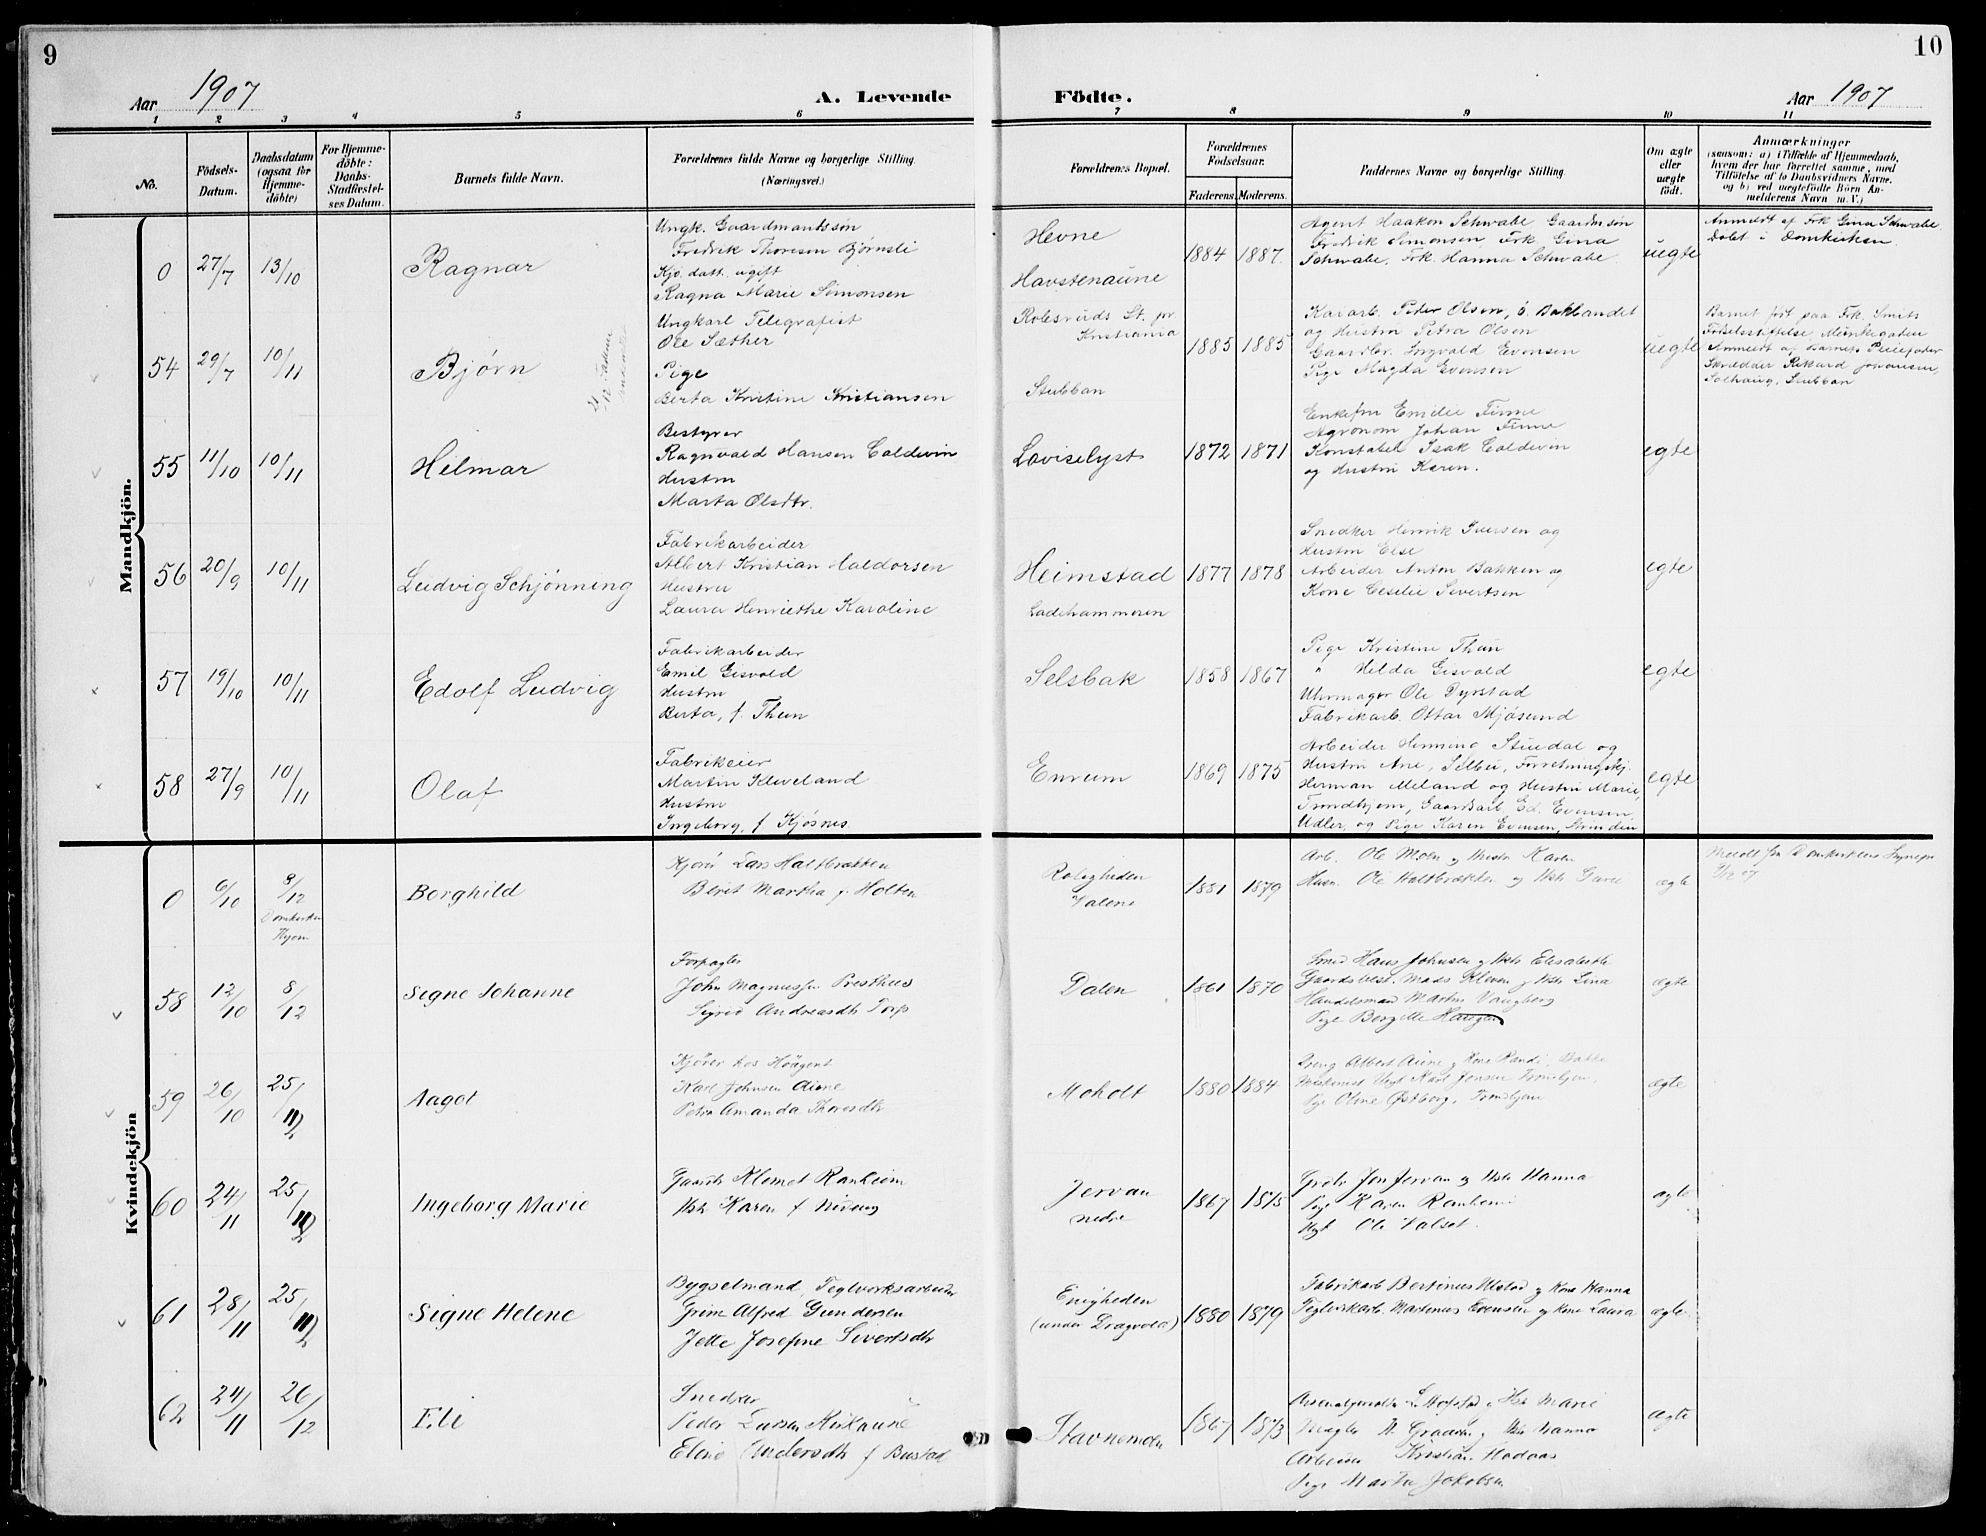 9
10
Aar 1907
A. Levende
Födte.
Aar 1907
1 2 3 4 5 6 7 8 9 10 11
No.
Födsels-
Datum.
Daabsdatum
(ogsaa for
Hjemme-
döbte)
For Hjemme-
döbte:
Daabs-
Stadfæstel-
ses Datum.
Barnets fulde Navn.
Forældrenes fulde Navne og borgerlige Stilling.
(Næringsvei.)
Forældrenes Bopæl.
Forældrenes
Födselsaar.
Faderens. Moderens.
Faddernes Navne og borgerlige Stilling.
Om ægte
eller
uægte
födt.
Anmærkninger
(saasom: a) i Tilfælde af Hjemmedaab,
hvem der har forrettet samme, med
Tilföielse af to Daabsvidners Navne,
og b) ved uægtefödte Börn An-
melderens Navn m. V.)
Mandkjön.
0 27/7 13/10 Ragnar
Ungk. Gaardmandssøn
Fredrik Thoresen Bjørnsli
Kjø. datt. ugift
Ragna Marie Simonsen
Hevne
Havstenaune
1884 1887.
Agent Haakon Schwabe Gaardmsøn
Fredrik Simonsen Frk. Gina
Schwabe, Frk. Hanna Schwabe.
uegte
Anmeldt af Frk Gina Schwabe
Døbt i Domkirken.
54 29/7 10/11 Bjørn
Ungkarl Telegrafist
Ole Sæther
Pige
Berta Kristine Kristiansen
Rolesvuds St. pr
Kristiania
Stubban
1885 1885
Kararb. Peter Olsen, ö. Baklandet
og Hustru Petra Olsen
Gaardbr. Ingvald Evensen
Pige Magda Evensen
uegte
Barnet født paa Frk. Smits
Fødselsstiftelse, Munkegaten
Anmeldt af Barnets Pleiefader
Skrædder Rikard Johansen,
Solhaug, Stubban
55 11/10 10/11 Hilmar
Bestyrer
Ragnvald Hansen Coldevin
Hustru
Marta Olsdtr.
Loviselyst
1872 1871
Enkefru Emilie Finne
Agronom Johan Finne
Konstabel Isak Coldevin
og Hustru Karen.
egte
56 20/9 10/11 Ludvig Schjønning
Fabrikarbeider
Albert Kristian Haldorsen
Hustru
Laura Henriethe Karoline
Heimstad
Ladehammeren
1877 1878
Snedker Henrik Iversen og
Hustru Else
Arbeider Anton Bakken og
Kone Cesilie Sivertsen
egte
57 19/10 10/11 Edolf Ludvig
Fabrikarbeider
Emil Gisvold
Hustru
Berta, f. Thun
Selsbak
1858 1867
Pige Kristine Thun
" Helda Gisvold
Uhrmager Ole Dyrstad
Fabrikarb. Ottar Mjøsund
egte
58 27/9 10/11 Olaf
Fabrikeier
Martin Kleveland
Hustru
Ingeborg, f Kjøsnes
Enrum
1869 1875
Arbeider Henning Stuedal og
Hustru Ane, Selbu, Forretningskj.
Herman Meland og Hustru Marie,
Trondhjem, Gaardarb. Ed. Evensen,
Udler, og Pige Karen Evensen, Strinden
egte
Kvindekjön
0 6/10 8/12 Borghild
Domkirken
Thjem
Kjører Lars Haltbrækken
Berit Martha f. Holten
Roligheden
Valene
1881 1879
Arb. Ole Moen og Hustr Karen
Husm. Ole Haltbrækken og Hstr
ægte
Meldt fra Domkirkens Sogne
9/12 07
58 12/10 8/12 Signe Johanne
Forpagter
John Magnussen Presthus
Sigrid Andreasdtr Torp
Dalen
1861 1870
Smed Hans Johnsen og Hstr Elisabeth
Gaardsbest. Mads Kleven og Hstr Lina
Handelsmand Martin Vangberg
Pige Borgitte Haugen
ægte
59 26/10 25/12 Aagot
Kjører hos Höagent
Karl Johnsen Aune
Petra Amanda Thoresdtr
Moholt
1880 1884
Albert Aune og Kone Randi, Bakke
Karl Jonsen Trondhjem,
Pige Oline Østborg, Trondhjem
ægte
60 24/11 25/12 Ingeborg Marie
Gaardbr Klemet Ranheim
Hstr Karen f
Jervan
nedre
1867 1875
Grdbr Jon Jervan og Hstr Hanna
Pige Karen Ranheim
Ungk Ole Valset.
ægte
61 28/11 25/12 Signe Helene
Bygselmand, Teglverksarbeider
Grim Alfred Gundersen
Jette Josefine Sivertsdtr
Enigheden
(under Dragvold)
1880 1879
Fabrikarb Bertinus Ulstad og Kone Hanna
Teglverksarb. Martinus Evensen og Kone Laura
ægte
62 24/11 26/12 Eli
Snedker
Peder Larsen Kirkaune
Eline Andersdtr f Bustad
Stavnemoen
1867 1873
L. Hofstad og Hstr Marie
og Hstr Hanna
Arbeider Kristian Hadaas
Pige Martha Jakobsen
ægte